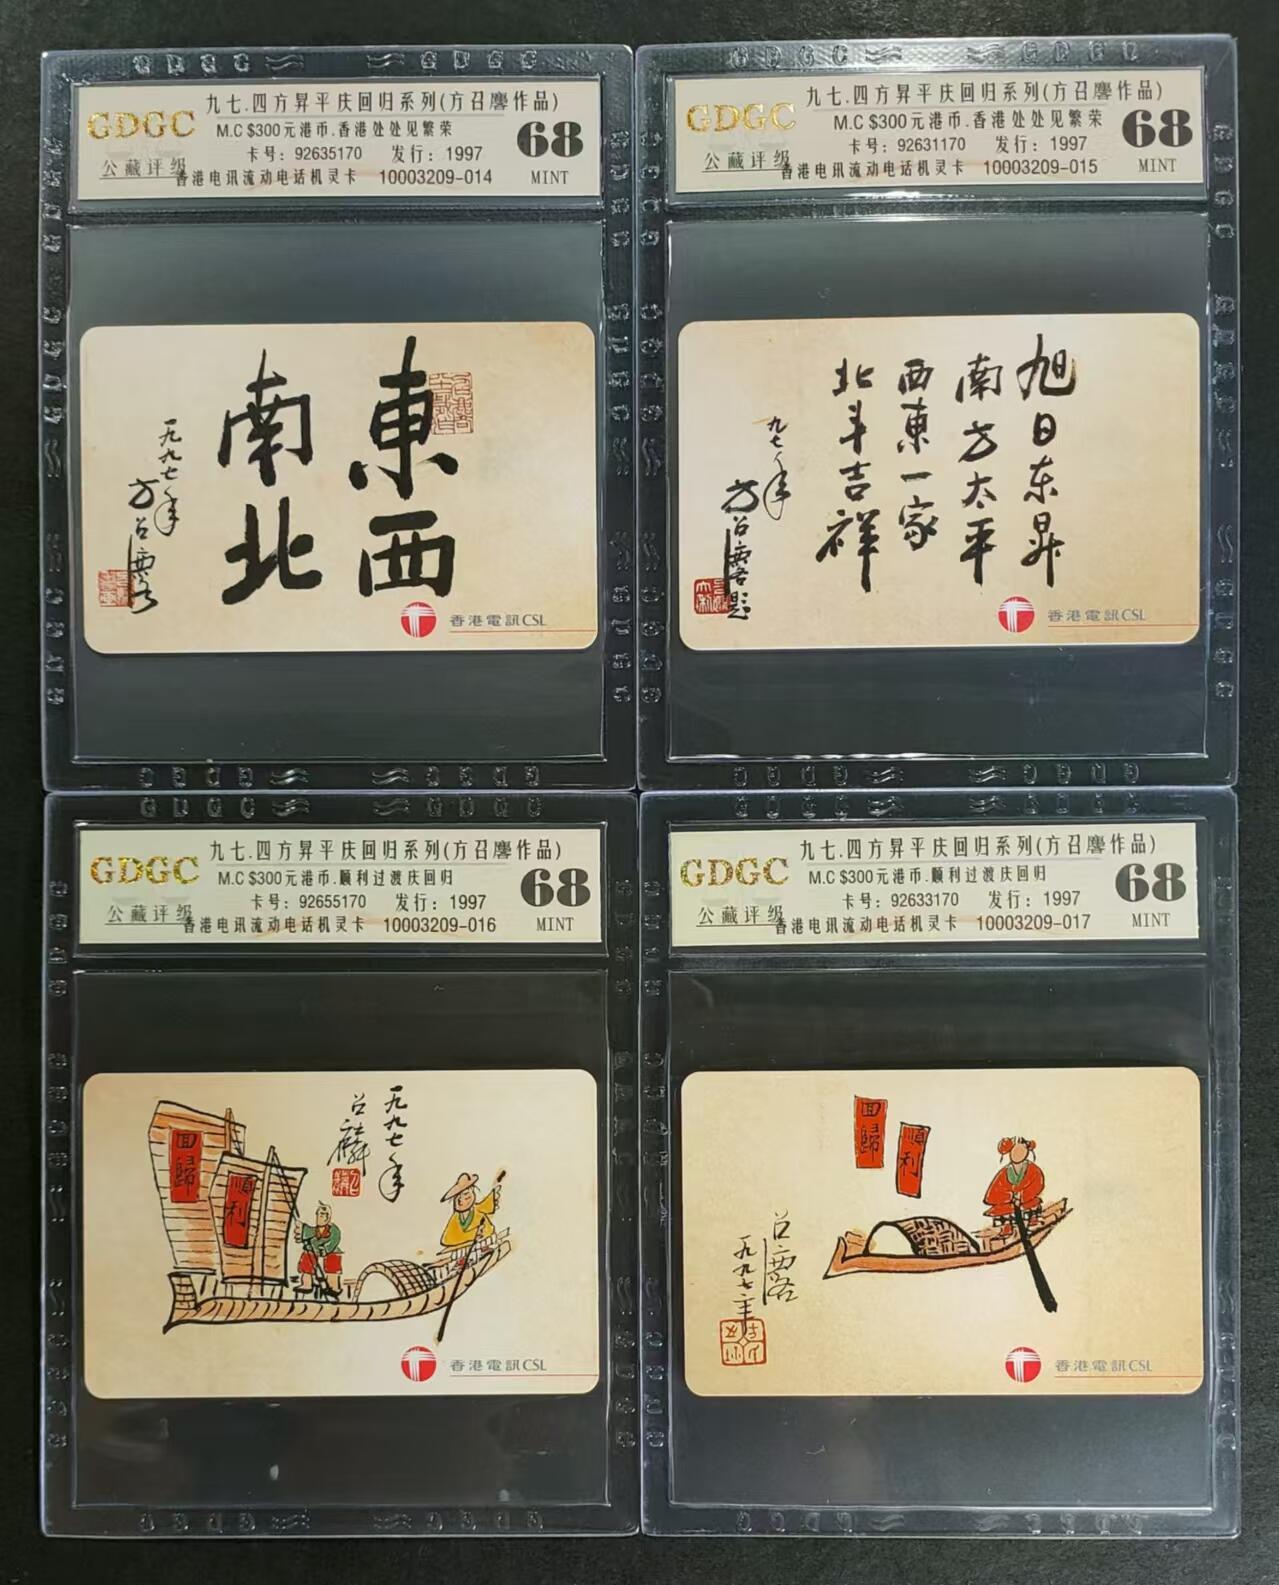 GDGC
公藏评级
九七.四方昇平庆回归系列(方召麐作品)
M.C $300元港币.香港处处见繁荣
卡号: 92635170 发行: 1997
香港电讯流动电话机灵卡 10003209-014
68
MINT
東西
南北
一九九七年
方召麐
香港電訊CSL
GDGC
公藏评级
九七.四方昇平庆回归系列(方召麐作品)
M.C $300元港币.香港处处见繁荣
卡号: 92631170 发行: 1997
香港电讯流动电话机灵卡 10003209-015
68
MINT
旭日东昇
南方太平
西東一家
北斗吉祥
九七年
方召麐题
香港電訊CSL
GDGC
公藏评级
九七.四方昇平庆回归系列(方召麐作品)
M.C $300元港币.顺利过渡庆回归
卡号: 92655170 发行: 1997
香港电讯流动电话机灵卡 10003209-016
68
MINT
一九九七年
召麟
回歸
順利
香港電訊CSL
GDGC
公藏评级
九七.四方昇平庆回归系列(方召麐作品)
M.C $300元港币.顺利过渡庆回归
卡号: 92633170 发行: 1997
香港电讯流动电话机灵卡 10003209-017
68
MINT
回歸
順利
召麐
一九九七年
香港電訊CSL